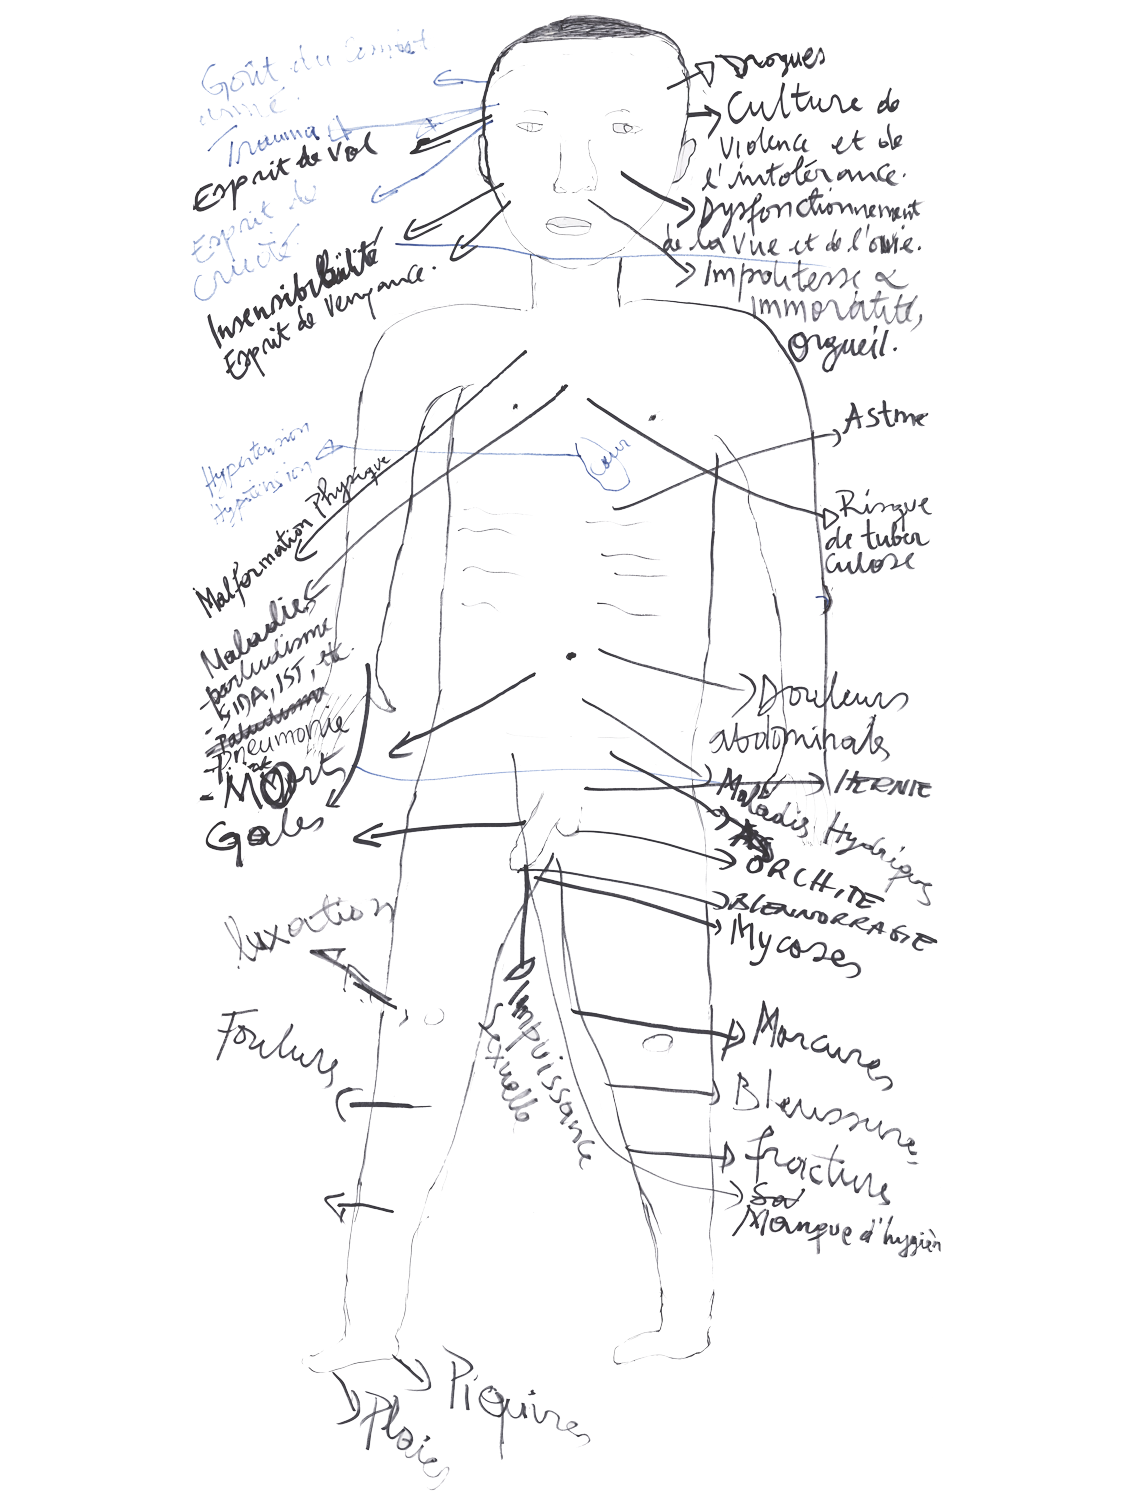 Goût du Combat
armé.
Trauma
Esprit de Vol
Esprit de
cruauté
Insensibilité
Esprit de Vengeance.
Drogues
Culture de
Violence et de
l'intolérance.
Dysfonctionnement
de la Vue et de l'ouïe.
Impolitesse &
immoralité,
Orgueil.
Hypertension
Hypotension
Coeur
Malformation Physique
Maladies
- paludisme
- SIDA, IST, etc.
- Paludisme
- Pneumonie
- Morts
Gales
Astme
Risque
de tuber
culose
Douleurs
abdominales
HERNIE
Maladis Hydriques
ORCHITE
BLENNORRAGIE
Mycoses
luxation
Foulure
Impuissance
Sexuelle
Morcures
Bleussure
fracture
Manque d'hygièn
Piquires
Plaies